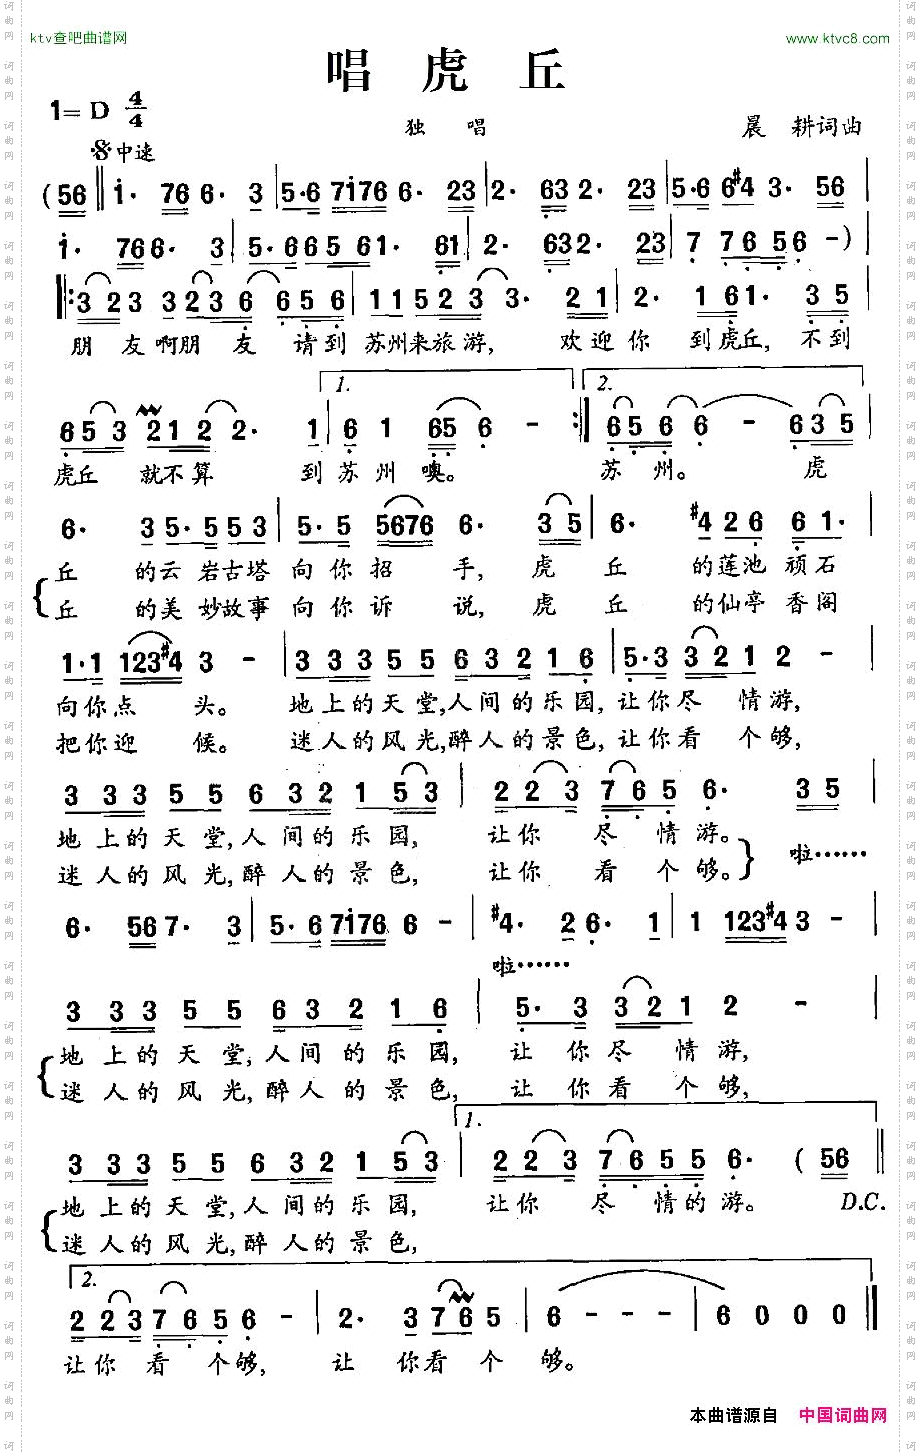 ktv查吧曲谱网 www.ktvc8.com
唱虎丘
1=D 4/4
独唱 晨耕词曲
中速
(56 ‖ i· 76 6· 3 | 5·6 7i76 6· 23 | 2· 63 2· 23 | 5·6 6#4 3· 56 |
i· 76 6· 3 | 5·6 65 61· 61 | 2· 63 2· 23 | 7 76 56 -) |
‖: 3 23 3 323 6 656 | 11523 3· 21 | 2· 161· 35 |
朋友啊朋友 请到 苏州来旅游, 欢迎你 到虎丘, 不到
1. 2.
653 212 2· 1 | 6 1 65 6 - :‖ 656 6 - 635 |
虎丘 就不算 到苏州噢。 苏州。 虎
6· 3 5·5 53 | 5·5 5676 6· 35 | 6· #4 26 61· |
丘 的云岩古塔向你招手, 虎丘 的莲池顽石
丘 的美妙故事向你诉说, 虎丘 的仙亭香阁
1·1 123#4 3 - | 3 33 55 632 16 | 5·3 321 2 - |
向你点头。 地上的天堂,人间的乐园, 让你尽情游,
把你迎候。 迷人的风光,醉人的景色, 让你看个够,
3 33 5 5 6 32 1 53 | 2 23 765 6· 35 |
地上的天堂,人间的乐园, 让你尽情游。 啦……
迷人的风光,醉人的景色, 让你看个够。
6· 567· 3 | 5·6 7i76 6 - | #4· 26· 1 | 1 123#4 3 - |
啦……
3 33 5 5 6 3 2 1 6 | 5· 3 321 2 - |
地上的天堂,人间的乐园, 让你尽情游,
迷人的风光,醉人的景色, 让你看个够,
1.
3 33 5 5 6 32 1 53 | 2 23 7655 6· (56 ‖
地上的天堂,人间的乐园, 让你尽情的游。 D.C.
迷人的风光,醉人的景色,
2.
2 23 765 6 - | 2· 3 76 5 | 6 - - - | 6 0 0 0 ‖
让你看个够, 让你看个够。
本曲谱源自 中国词曲网